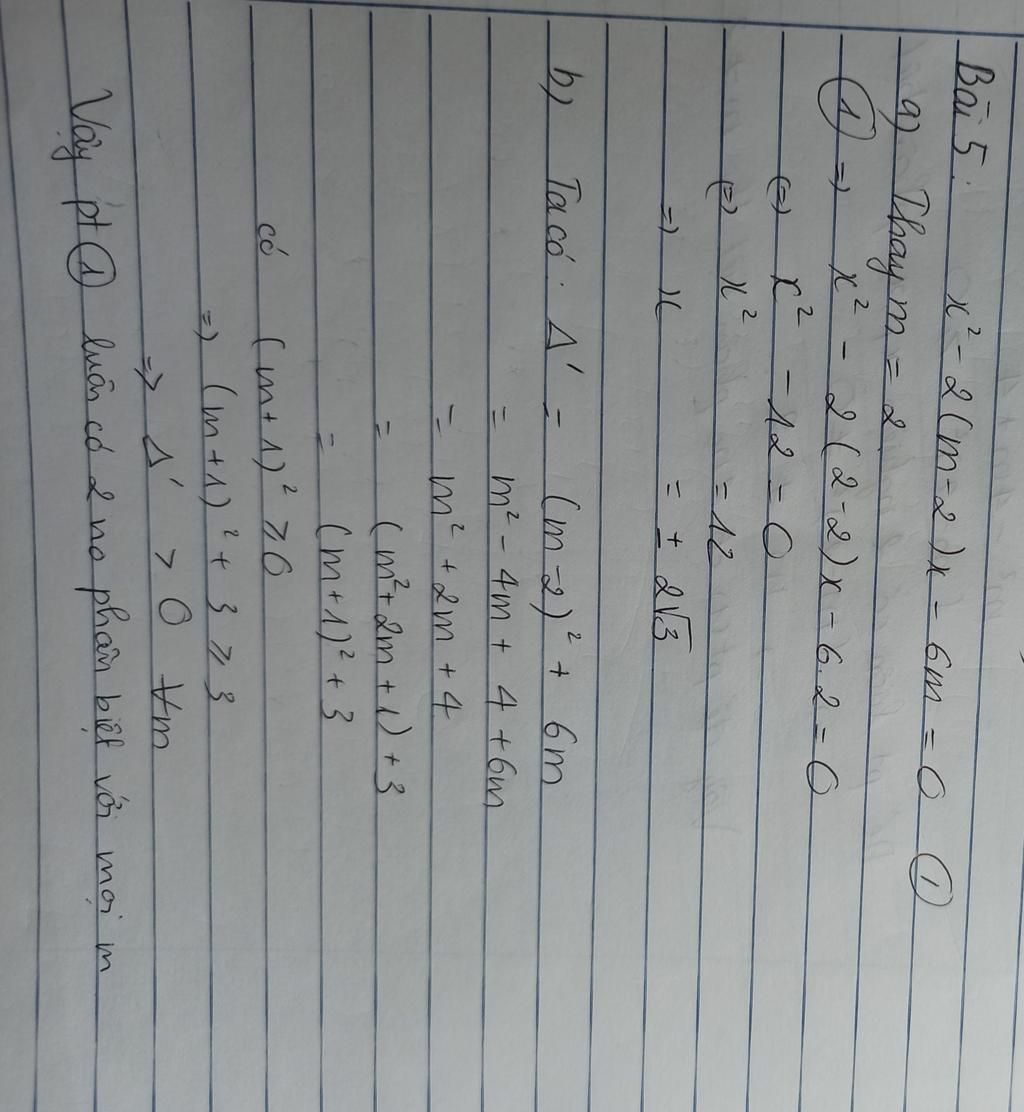 Bài 5: x² - 2(m-2)x - 6m = 0 ①
a) Thay m = 2
① => x² - 2(2-2)x - 6.2 = 0
(=) x² - 12 = 0
(=) x² = 12
=> x = ± 2√3
b) Ta có: Δ' = (m-2)² + 6m
= m² - 4m + 4 + 6m
= m² + 2m + 4
= (m² + 2m + 1) + 3
= (m+1)² + 3
có (m+1)² ≥ 0
=> (m+1)² + 3 ≥ 3
=> Δ' > 0 ∀m
Vậy pt ① luôn có 2 no phân biệt với mọi m